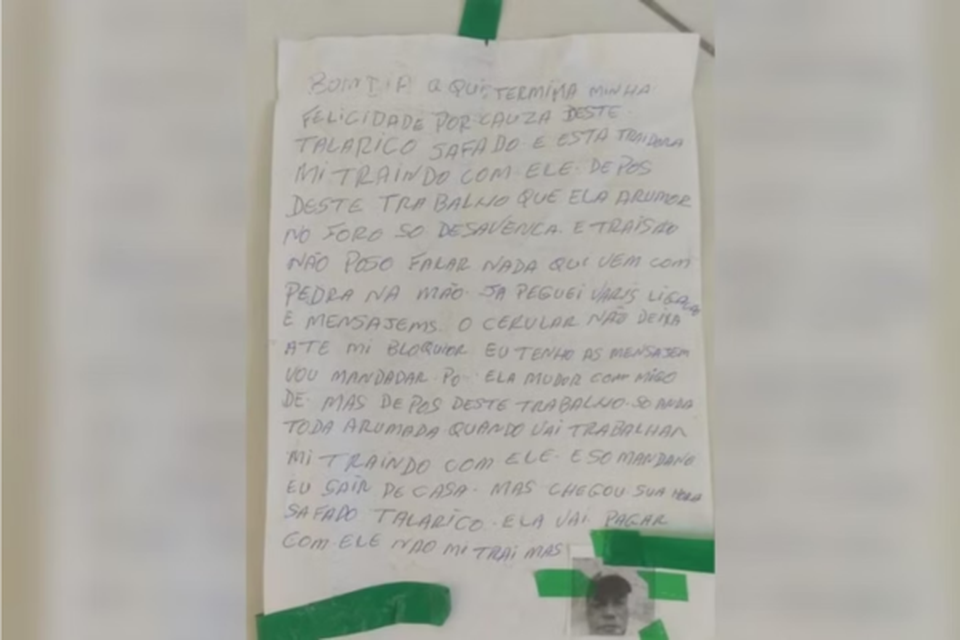 BOM DIA AQUI TERMINA MINHA
FELICIDADE POR CAUZA DESTE
TALARICO SAFADO E ESTA TRAIDORA
MI TRAINDO COM ELE DEPOS
DESTE TRABALHO QUE ELA ARUMOR
NO FORO SO DESAVENCA E TRAISÃO
NÃO POSO FALAR NADA QUI VEM COM
PEDRA NA MÃO JA PEGUEI VARIS
E MENSAJEMS O CERULAR NÃO DEIXA
ATE MI BLOQUIOR EU TENHO AS MENSAJEM
VOU MANDADAR PO ELA MUDOR COM MIGO
DE MAS DEPOS DESTE TRABALHO SO ANDA
TODA ARUMADA QUANDO VAI TRABALHAR
MI TRAINDO COM ELE E SO MANDANO
EU SAIR DE CASA MAS CHEGOU SUA HORA
SAFADO TALARICO ELA VAI PAGAR
COM ELE NÃO MI TRAI MAS